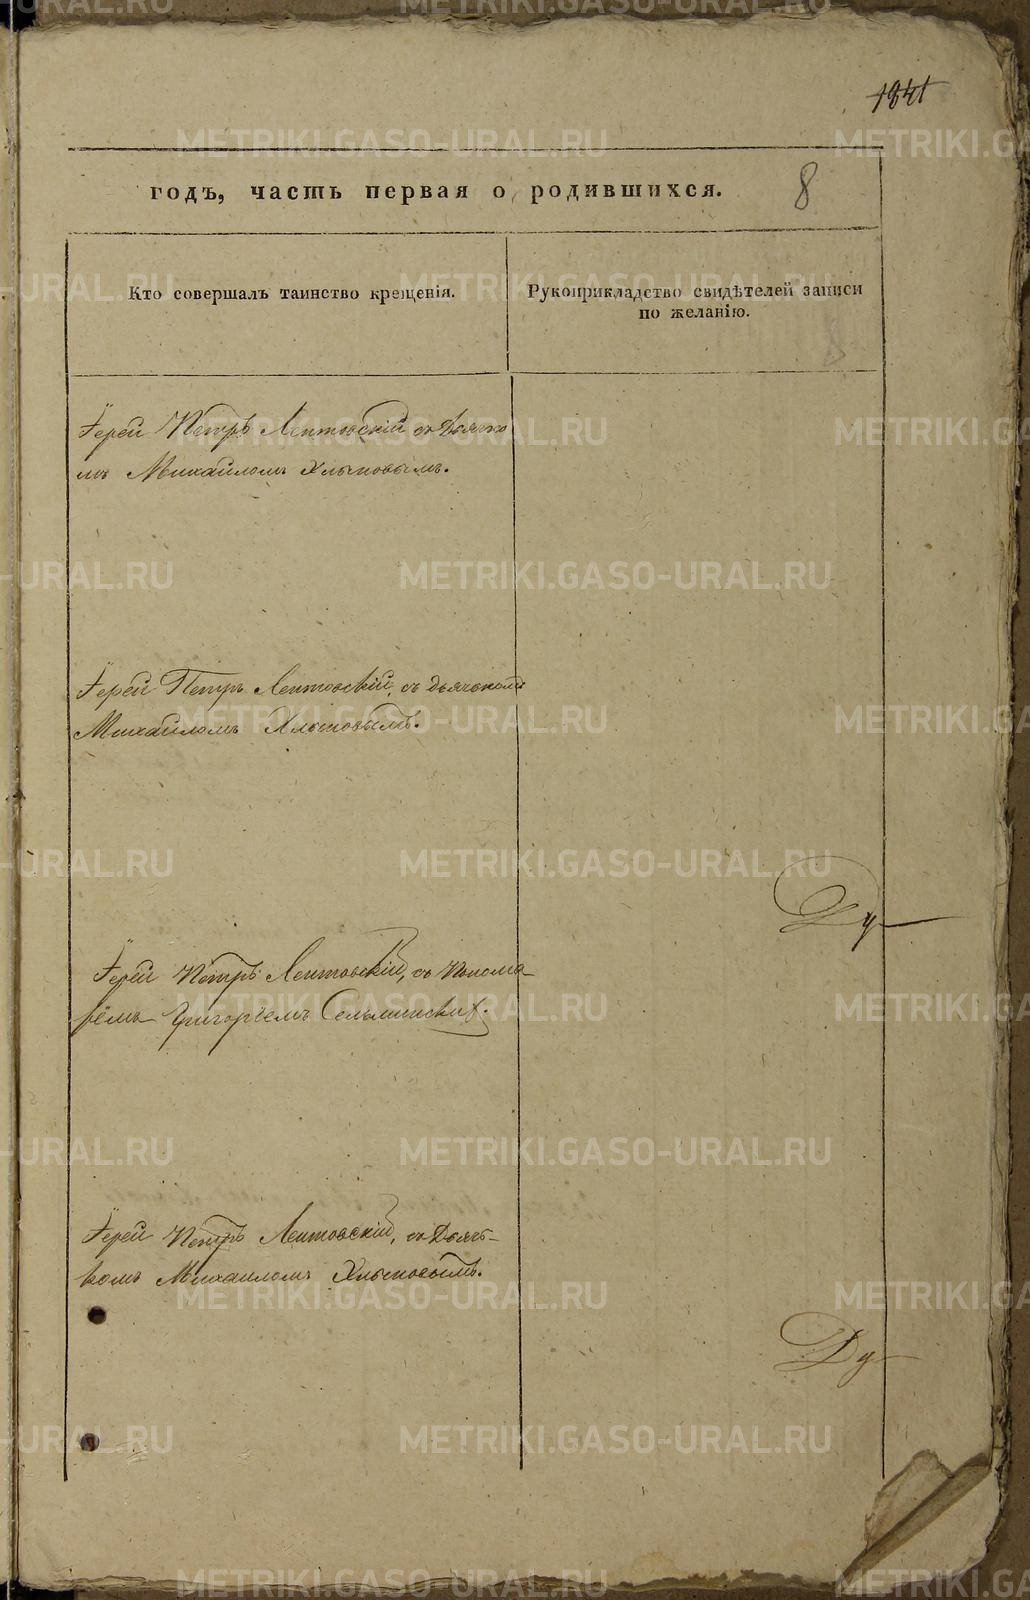 1841
годъ, часть первая о родившихся.
8
Кто совершалъ таинство крещенія.
Рукоприкладство свидѣтелей записи
по желанію.
Іерей Петръ Лентовскій съ Дьячко
мъ Михайломъ Хлыновымъ.
Іерей Петръ Лентовскій, съ дьячькомъ
Михайломъ Хлыновымъ.
Ду
Іерей Петръ Лентовскій, съ Понома-
рёмъ Григорьемъ
Іерей Петръ Лентовскій, съ Дьячь-
комъ Михаиломъ Хлыновымъ.
Ду
METRIKI.GASO-URAL.RU